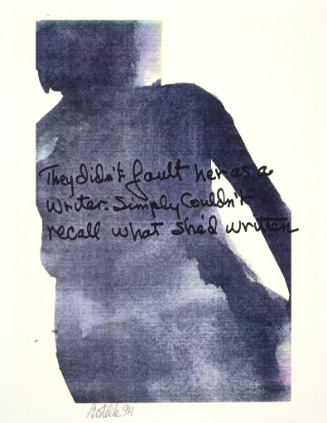 They didn't fault her as a
writer. Simply Couldn't
recall what she'd written